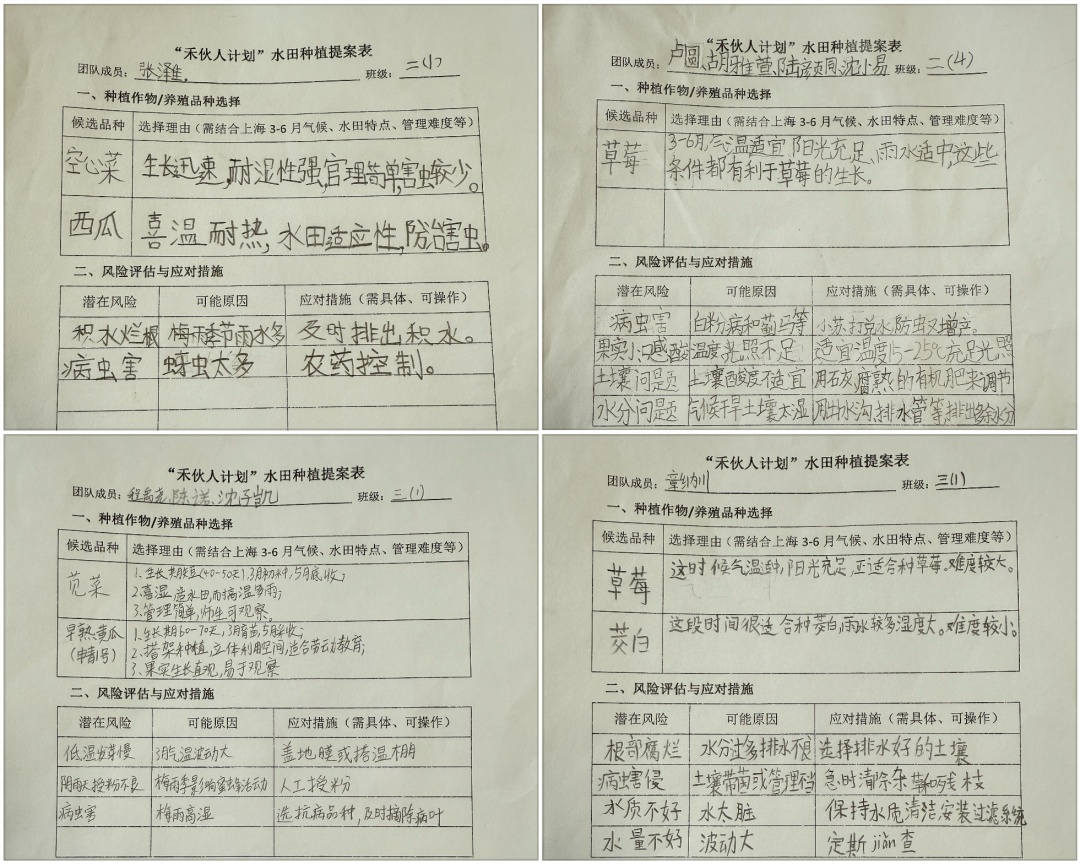 “禾伙人计划”水田种植提案表
团队成员: 张泽 班级: 二(1)
一、种植作物/养殖品种选择
候选品种 选择理由（需结合上海3-6月气候、水田特点、管理难度等）
空心菜 生长迅速,耐湿性强,官理简单,害虫较少。
西瓜 喜温耐热,水田适应性,防治害虫。
二、风险评估与应对措施
潜在风险 可能原因 应对措施（需具体、可操作）
积水烂根 梅雨季节雨水多 及时排出积水。
病虫害 蚜虫太多 农药控制。
“禾伙人计划”水田种植提案表
团队成员: 卢圆、胡雅萱、陆彦同、沈小易 班级: 二(4)
一、种植作物/养殖品种选择
候选品种 选择理由（需结合上海3-6月气候、水田特点、管理难度等）
草莓 3-6月,气温适宜,阳光充足、雨水适中,这些
条件都有利于草莓的生长。
二、风险评估与应对措施
潜在风险 可能原因 应对措施（需具体、可操作）
病虫害 白粉病和蓟马等 小苏打兑水防虫又增产。
果实小口感酸 温度光照不足 适宜温度15-25℃充足光照
土壤问题 土壤酸度不适宜 用石灰,腐熟的有机肥来调节
水分问题 气候干旱土壤太湿 用出水沟,排水管等,排出多余水分
“禾伙人计划”水田种植提案表
团队成员: 程禹尧、陈诺、沈子凯 班级: 三(1)
一、种植作物/养殖品种选择
候选品种 选择理由（需结合上海3-6月气候、水田特点、管理难度等）
苋菜 1.生长期短(40-50天),3月初种,5月底收;
2.喜湿,适水田,耐高温多雨;
3.管理简单,师生可观察。
早熟黄瓜 1.生长期60-70天,3月育苗,5月采收;
(申青1号) 2.搭架种植,立体利用空间,适合劳动教育;
3.果实生长直观,易于观察
二、风险评估与应对措施
潜在风险 可能原因 应对措施（需具体、可操作）
低温发芽慢 3月气温波动大 盖地膜或搭温棚
阴雨天授粉不良 梅雨季影响蜜蜂活动 人工授粉
病虫害 梅雨高湿 选抗病品种,及时摘除病叶
“禾伙人计划”水田种植提案表
团队成员: 章纳川 班级: 三(1)
一、种植作物/养殖品种选择
候选品种 选择理由（需结合上海3-6月气候、水田特点、管理难度等）
草莓 这时候气温适中,阳光充足,正适合种草莓。难度较大。
茭白 这段时间很适合种茭白,雨水较多湿度大。难度较小。
二、风险评估与应对措施
潜在风险 可能原因 应对措施（需具体、可操作）
根部腐烂 水分过多排水不良 选择排水好的土壤
病虫害侵 土壤带菌或管理不当 急时清除杂草和残枝
水质不好 水太脏 保持水质清洁安装过滤系统
水量不好 波动大 定斯jiǎn查